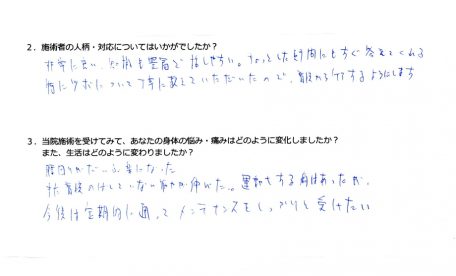 2．施術者の人柄・対応についてはいかがでしたか？
非常に良い、知識も豊富で話しやすい。ちょっとした質問にもすぐ答えてくれる
特に について丁寧に教えていただいたので、普段から するようにします
3．当院施術を受けてみて、あなたの身体の悩み・痛みはどのように変化しましたか？
また、生活はどのように変わりましたか？
腰回りがだいぶ楽になった
普段のばしていない が伸びた。運動もする はあったが、
今後は定期的に通ってメンテナンスをしっかりと受けたい